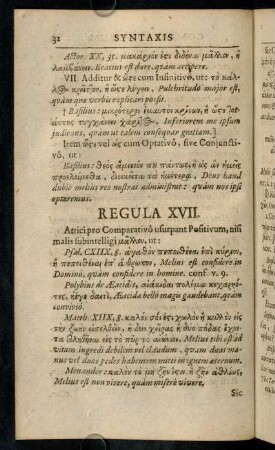 32 SYNTAXIS
Actor. XX, 35. μακάριόν ἐςι διδόναι μᾶλλον, ἢ
λαμβάνειν. Beatius est dare, quàm accipere.
VII. Additur & ὥςε cum Infinitivo, ut: τὸ κάλ-
λος κρεῖττον, ἢ ὥςε λέγειν. Pulchritudo major est,
quàm quæ verbis explicari possit.
† Basilius: μικρότερον ἐμαυτὸν κρίνων, ἢ ὥςε
αύτης τυγχάνειν χάριτος. Inferiorem me ipsum
judicans, quàm ut talem consequar gratiam.]
Item ὡς vel ὡς cum Optativo, sive Conjuncti-
vo, ut:
Basilius: Θεὸς ἄμεινον πάντως, ἢ ὡς ἂν ἡμεῖς
προελοίμεθα, διοικεῖται τὰ ἡμέτερα. Deus haud
dubiè meliùs res nostras administrat: quàm nos ipsi
optaremus.
REGULA XVII.
Attici pro Comparativô usurpant Positivum, nisi
malis subintelligi μᾶλλον, ut:
Psal. CXIIX, 8. ἀγαθὸν πεποιθέναι ἐπὶ κύριον,
ἢ πεποιθέναι ἐπ' ἄνθρωπον, Melius est confidere in
Domino, quàm confidere in homine. conf. v. 9.
Polybius de Æacidis, αἰακίδαι πολέμῳ κεχαρηό-
τες, ἠΰτε δαιτὶ, Æacidæ bellô magis gaudebant, quàm
convivio.
Matth. XIIX, 8. καλόν σοί ἐςι, χωλὸν ἢ κυλλὸν εἰς
τὴν ζωὴν εἰσελθεῖν, ἢ δύο χεῖρας ἢ δύο πόδας ἔχον-
τα βληθῆναι εἰς τὸ πῦρ τὸ αἰώνιον. Melius tibi est ad
vitam ingredi debilem vel claudum, quàm duas ma-
nus vel duos pedes habentem mitti in ignem æternum.
Menander: καλὸν τὸ μὴ ζῆν ἐςιν ἢ ζῆν ἀθλίως,
Melius est non vivere, quàm miserè vivere.
Sic